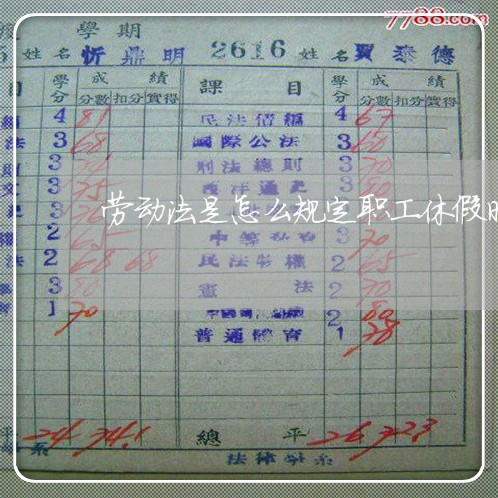 7788.com
學期
5 姓名 忻鼎明 2616 姓名 賈泰德
目 學分 成績 課目 學分 成績
分數 扣分 實得 分數 扣分 實得
4 81 民法債編 4 67
法 3 68 國際公法 3 60
3 刑法總則 3 70
3 75 西洋通史 3
3 法
劳动法是怎么规定职工休假
2 65 3 70
法 2 68 68 民法物權 2 65
3 80 憲法 2 70
1 70 2 80
普通體育 1 78
平 24 74.1 總平 26 72.3
系 法律學系